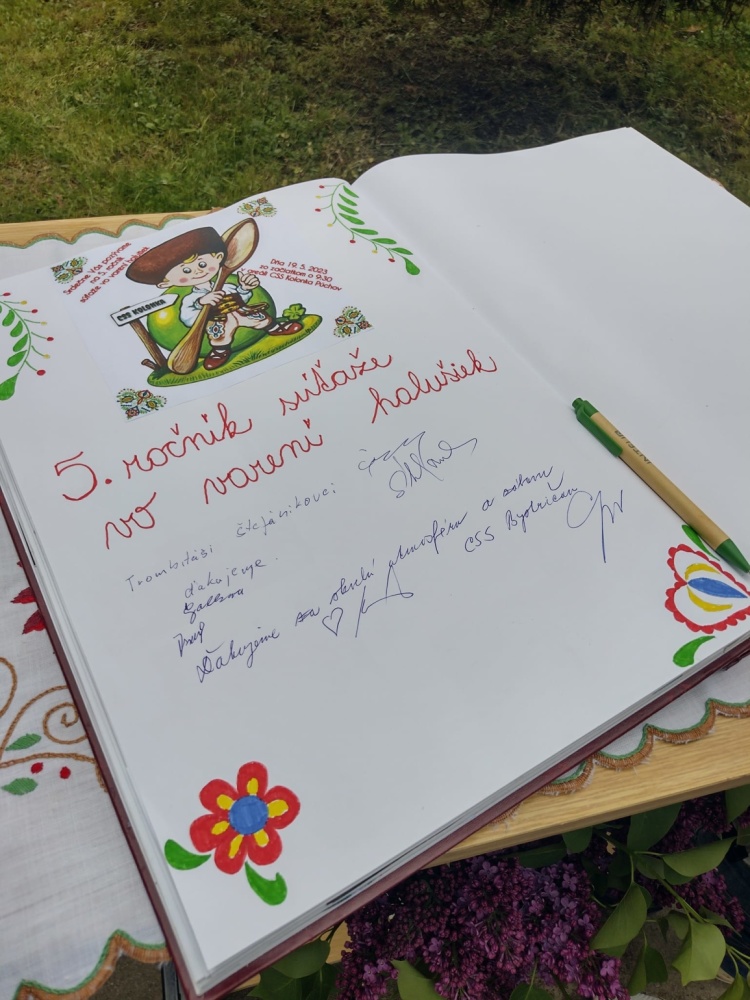 Srdečne Vás pozývame
na 5. ročník
súťaže vo varení halušiek
Dňa 19. 5. 2023
so začiatkom o 9:30
v areáli CSS Kolonka Púchov
CSS KOLONKA
5. ročník súťaže
vo varení halušiek
Trombitáši Štefánikovci
ďakujeme.
Ďakujeme za skvelú atmosféru a
CSS Bystričan